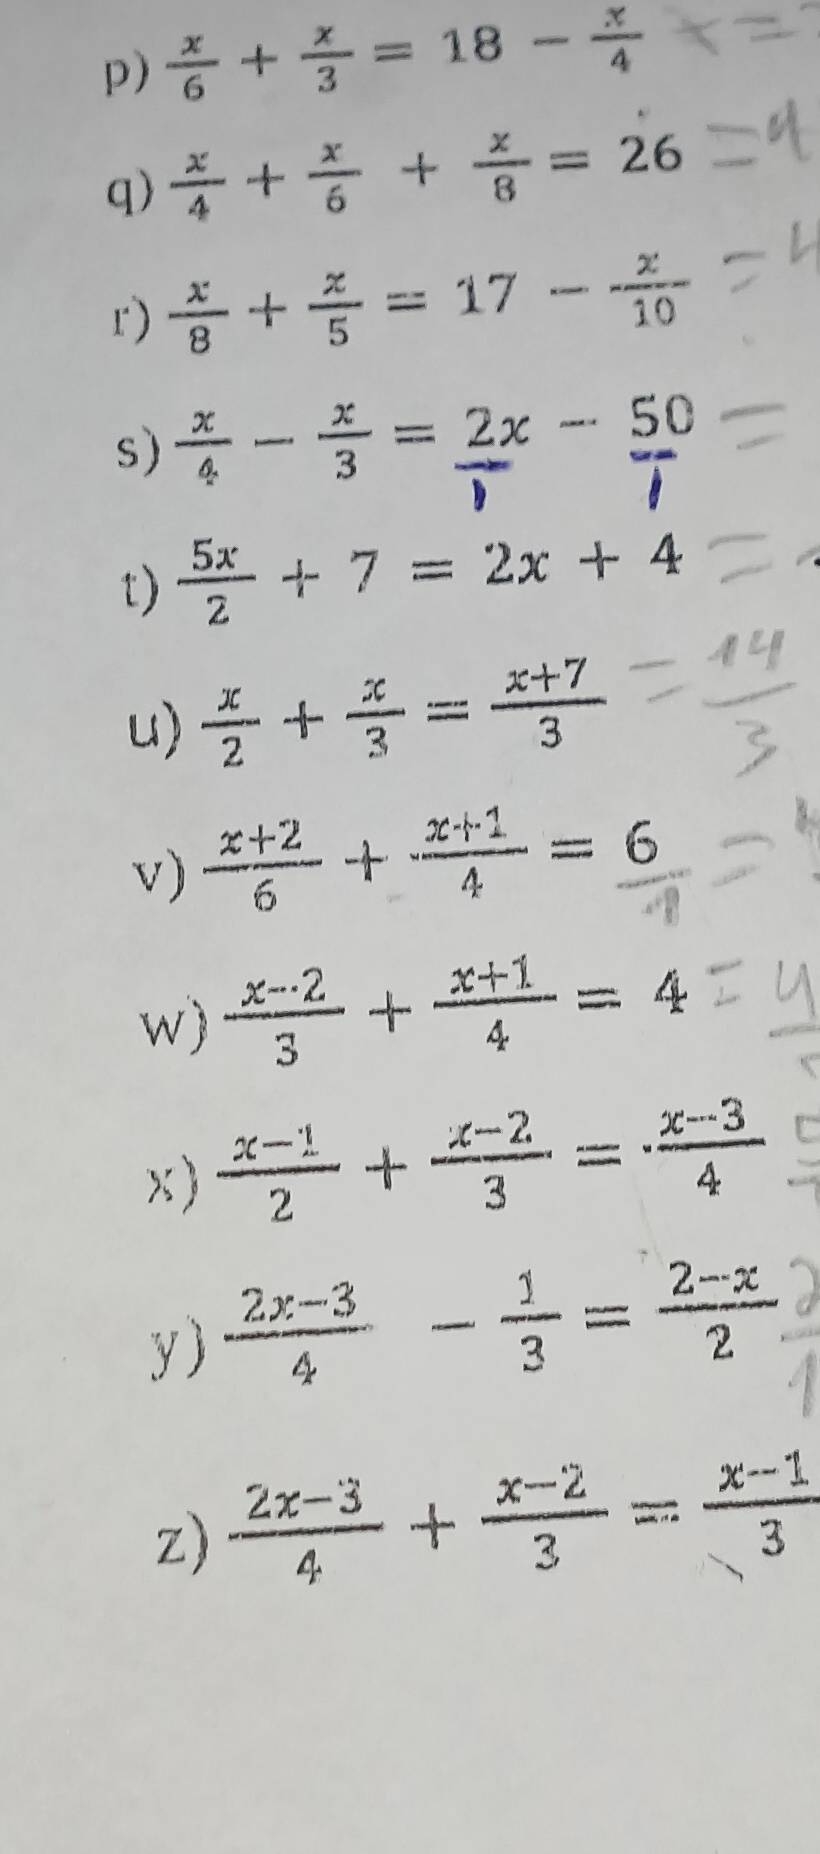 p) x/6 + x/3 = 18 − x/4 x =
q) x/4 + x/6 + x/8 = 26 = 9
r) x/8 + x/5 = 17 − x/10 = 4
s) x/4 − x/3 = 2x/1 − 50/1 =
t) 5x/2 + 7 = 2x + 4 = -
u) x/2 + x/3 = x+7/3 = 14/3
v) x+2/6 + x+1/4 = 6/1 =
w) x-2/3 + x+1/4 = 4 =
x) x−1/2 + x−2/3 = x-3/4
y) 2x−3/4 − 1/3 = 2-x/2 2/1
z) 2x−3/4 + x−2/3 = x-1/3